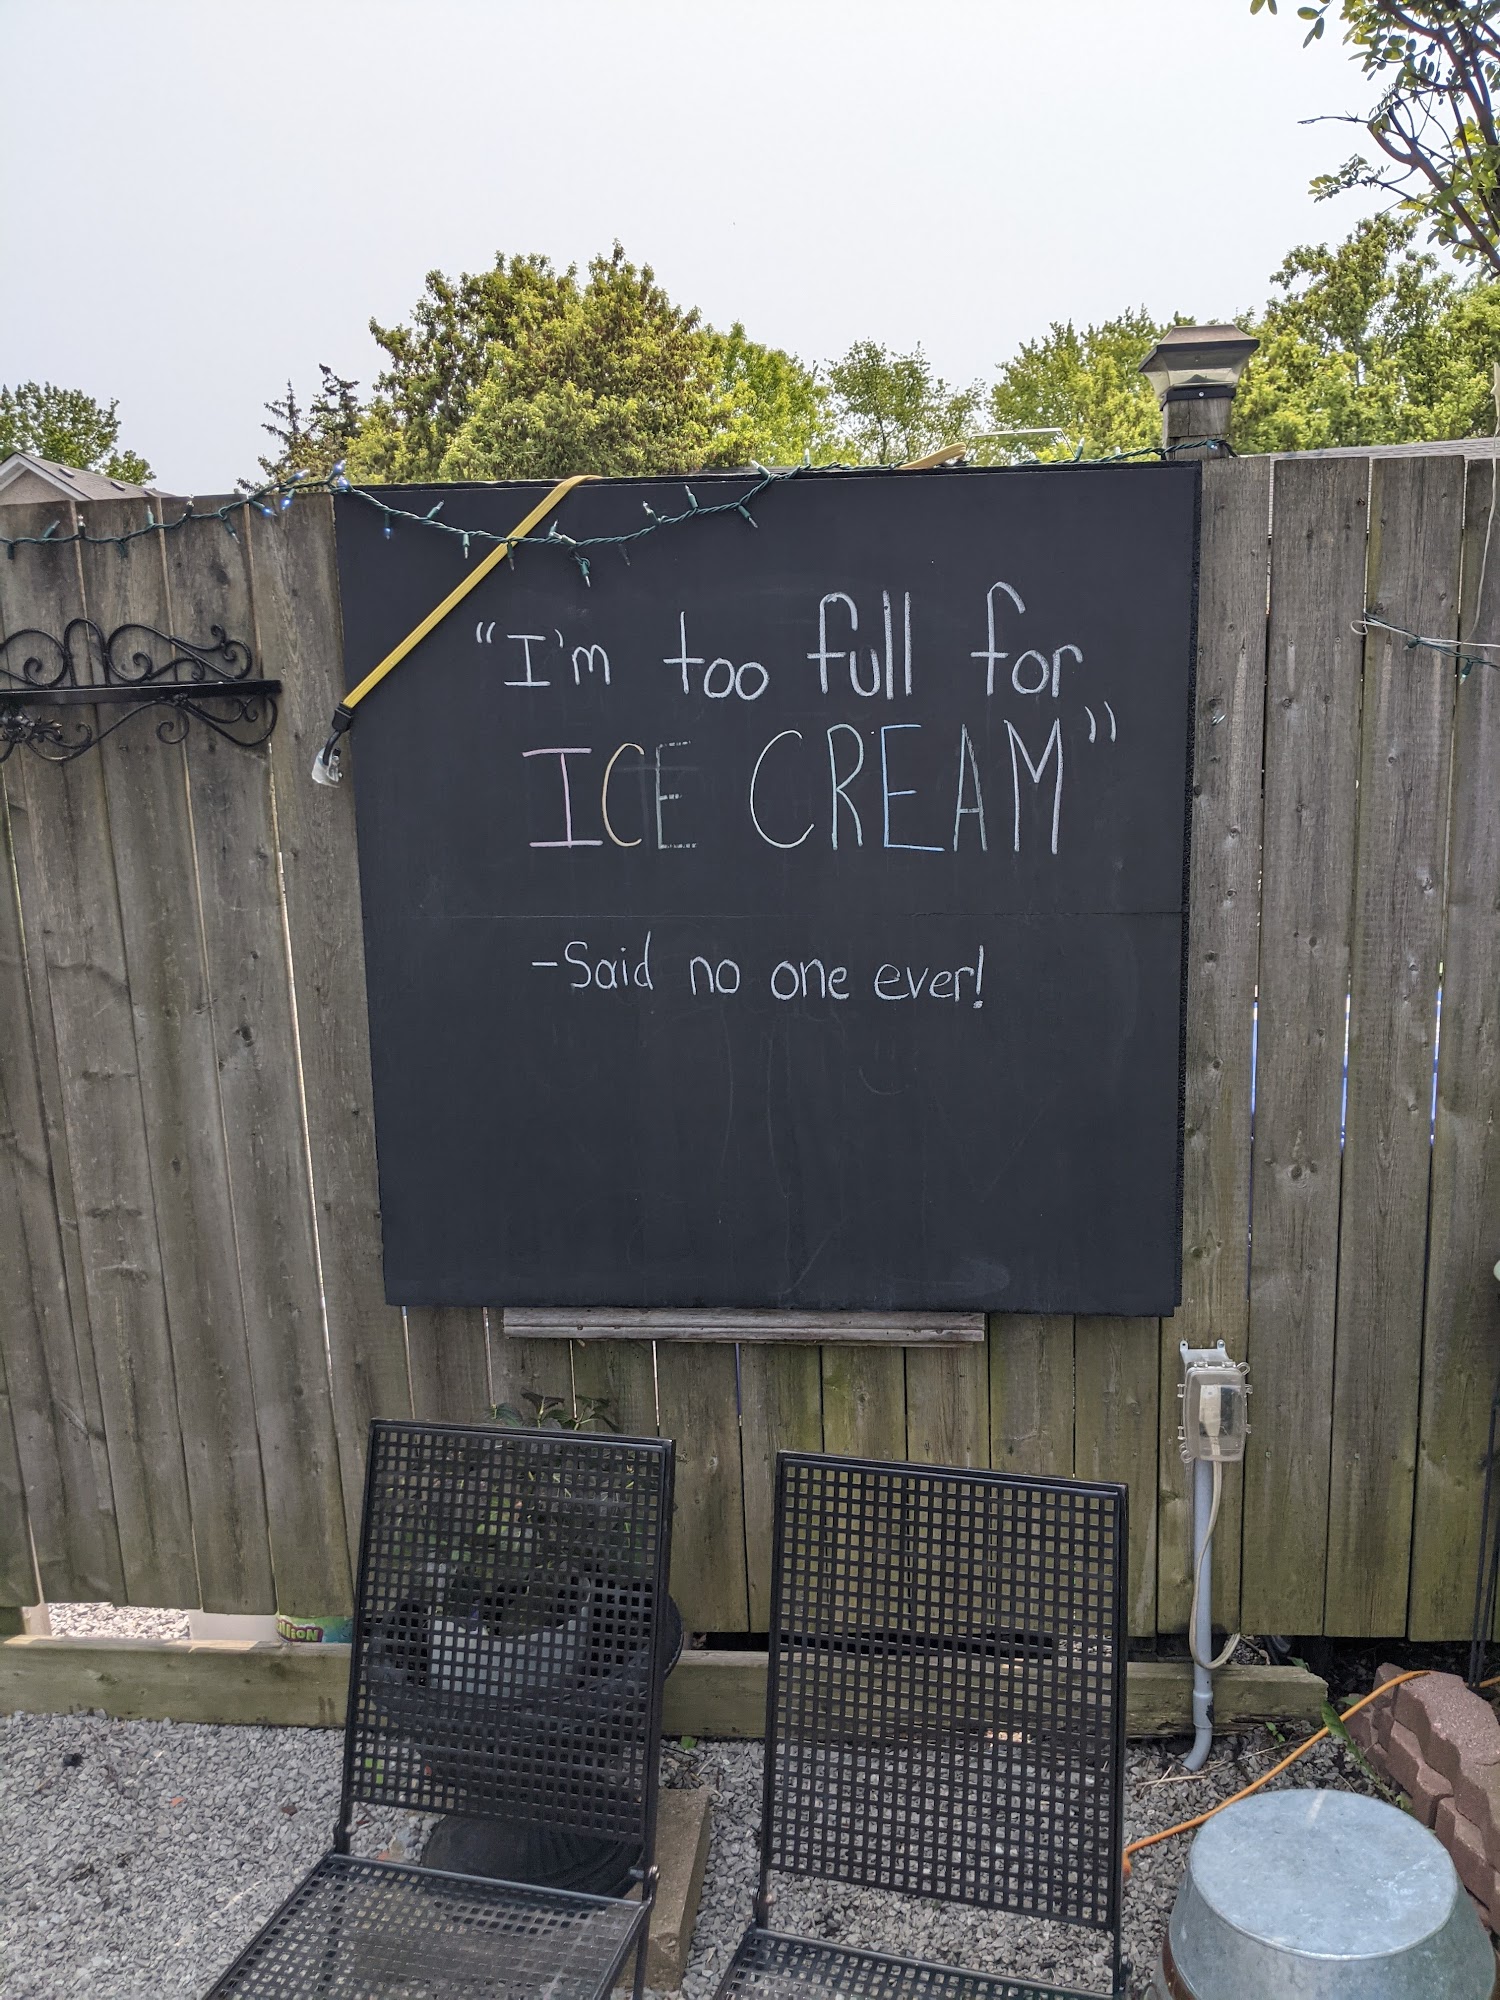 "I'm too full for
ICE CREAM"
-Said no one ever!